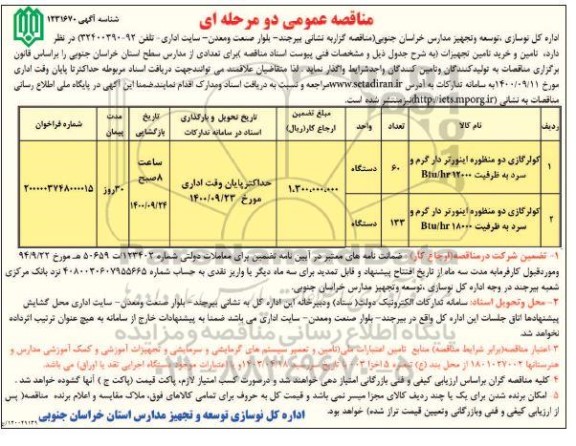 شناسه آگهی ۱۲۳۱۶۷۰
مناقصه عمومی دو مرحله ای
اداره کل نوسازی ،توسعه وتجهیز مدارس خراسان جنوبی(مناقصه گزاربه نشانی بیرجند- بلوار صنعت ومعدن- سایت اداری- تلفن ۹۲-۳۲۴۰۰۳۹۰) در نظر
دارد، تامین و خرید تامین تجهیزات (به شرح جدول ذیل و مشخصات فنی پیوست اسناد مناقصه )برای تعدادی از مدارس سطح استان خراسان جنوبی را براساس قانون
برگزاری مناقصات به تولیدکنندگان وتامین کنندگان واجدشرایط واگذار نماید. لذا متقاضیان علاقمند می توانندجهت دریافت اسناد مربوطه حداکثرتا پایان وقت اداری
مورخ ۱۴۰۰/۰۹/۱۱به سامانه تدارکات به آدرس www.setadiran.irمراجعه و نسبت به دریافت اسناد ومدارک اقدام نمایندضمنا این آگهی در پایگاه ملی اطلاع رسانی
مناقصات به نشانی (http://iets.mporg.ir)نیزمنتشر شده است.
ردیف نام کالا تعداد واحد مبلغ تضمین ارجاع کار(ریال) تاریخ تحویل و بارگذاری اسناد در سامانه تدارکات تاریخ بازگشایی مدت پیمان شماره فراخوان
۱ کولرگازی دو منظوره اینورتر دار گرم و سرد به ظرفیت Btu/hr ۱۲۰۰۰ ۶۰ دستگاه ۱.۳۰۰.۰۰۰.۰۰۰ حداکثرپایان وقت اداری مورخ ۱۴۰۰/۰۹/۲۳ ساعت ۸صبح ۱۴۰۰/۰۹/۲۴ ۳۰روز ۲۰۰۰۰۰۳۷۴۸۰۰۰۰۱۵
۲ کولرگازی دو منظوره اینورتر دار گرم و سرد به ظرفیت Btu/hr ۱۸۰۰۰ ۱۳۳ دستگاه
۱- تضمین شرکت درمناقصه(ارجاع کار): ضمانت نامه های معتبر در آیین نامه تضمین برای معاملات دولتی شماره ۱۲۳۴۰۲/ت ۵۰۶۵۹ هـ مورخ ۹۴/۹/۲۲
وموردقبول کارفرمابه مدت سه ماه از تاریخ افتتاح پیشنهاد و قابل تمدید برای سه ماه دیگر یا واریز نقدی به حساب شماره ۴۰۸۰۰۳۰۶۰۷۹۵۵۶۶۵ نزد بانک مرکزی
شعبه بیرجند در وجه اداره کل نوسازی ،توسعه وتجهیز مدارس خراسان جنوبی.
۲- محل وتحویل اسناد: سامانه تدارکات الکترونیک دولت( ستاد) ودبیرخانه این اداره کل به نشانی بیرجند-بلوار صنعت ومعدن- سایت اداری محل گشایش
پیشنهادها اتاق جلسات این اداره کل واقع در بیرجند- بلوار صنعت ومعدن- سایت اداری می باشد ضمنا به پیشنهادات خارج از سامانه به هیچ عنوان ترتیب اثرداده
نخواهد شد.
۳ اعتبار مناقصه(برابر شرایط مناقصه) منابع تامین اعتبارات ملی(تامین و تعمیر سیستم های گرمایشی و سرمایشی و تجهیزات آموزشی و کمک آموزشی مدارس و
۴- کلیه مناقصه گران براساس ارزیابی کیفی و فنی بازرگانی امتیاز دهی خواهند شد و درصورت کسب امتیاز لازم، پاکت قیمت (پاکت ج ) آنها گشوده خواهد شد.
۵ امکان برنده شدن برای یک یا چند ردیف کالای مجزا میسر نمی باشد و قیمت کل به حروف برای تمامی کالاهای فوق، ملاک مقایسه و اعلام برنده مناقصه( پس
از ارزیابی کیفی و فنی وبازرگانی وتعیین قیمت تراز شده) خواهد بود.
اداره کل نوسازی توسعه و تجهیز مدارس استان خراسان جنوبی